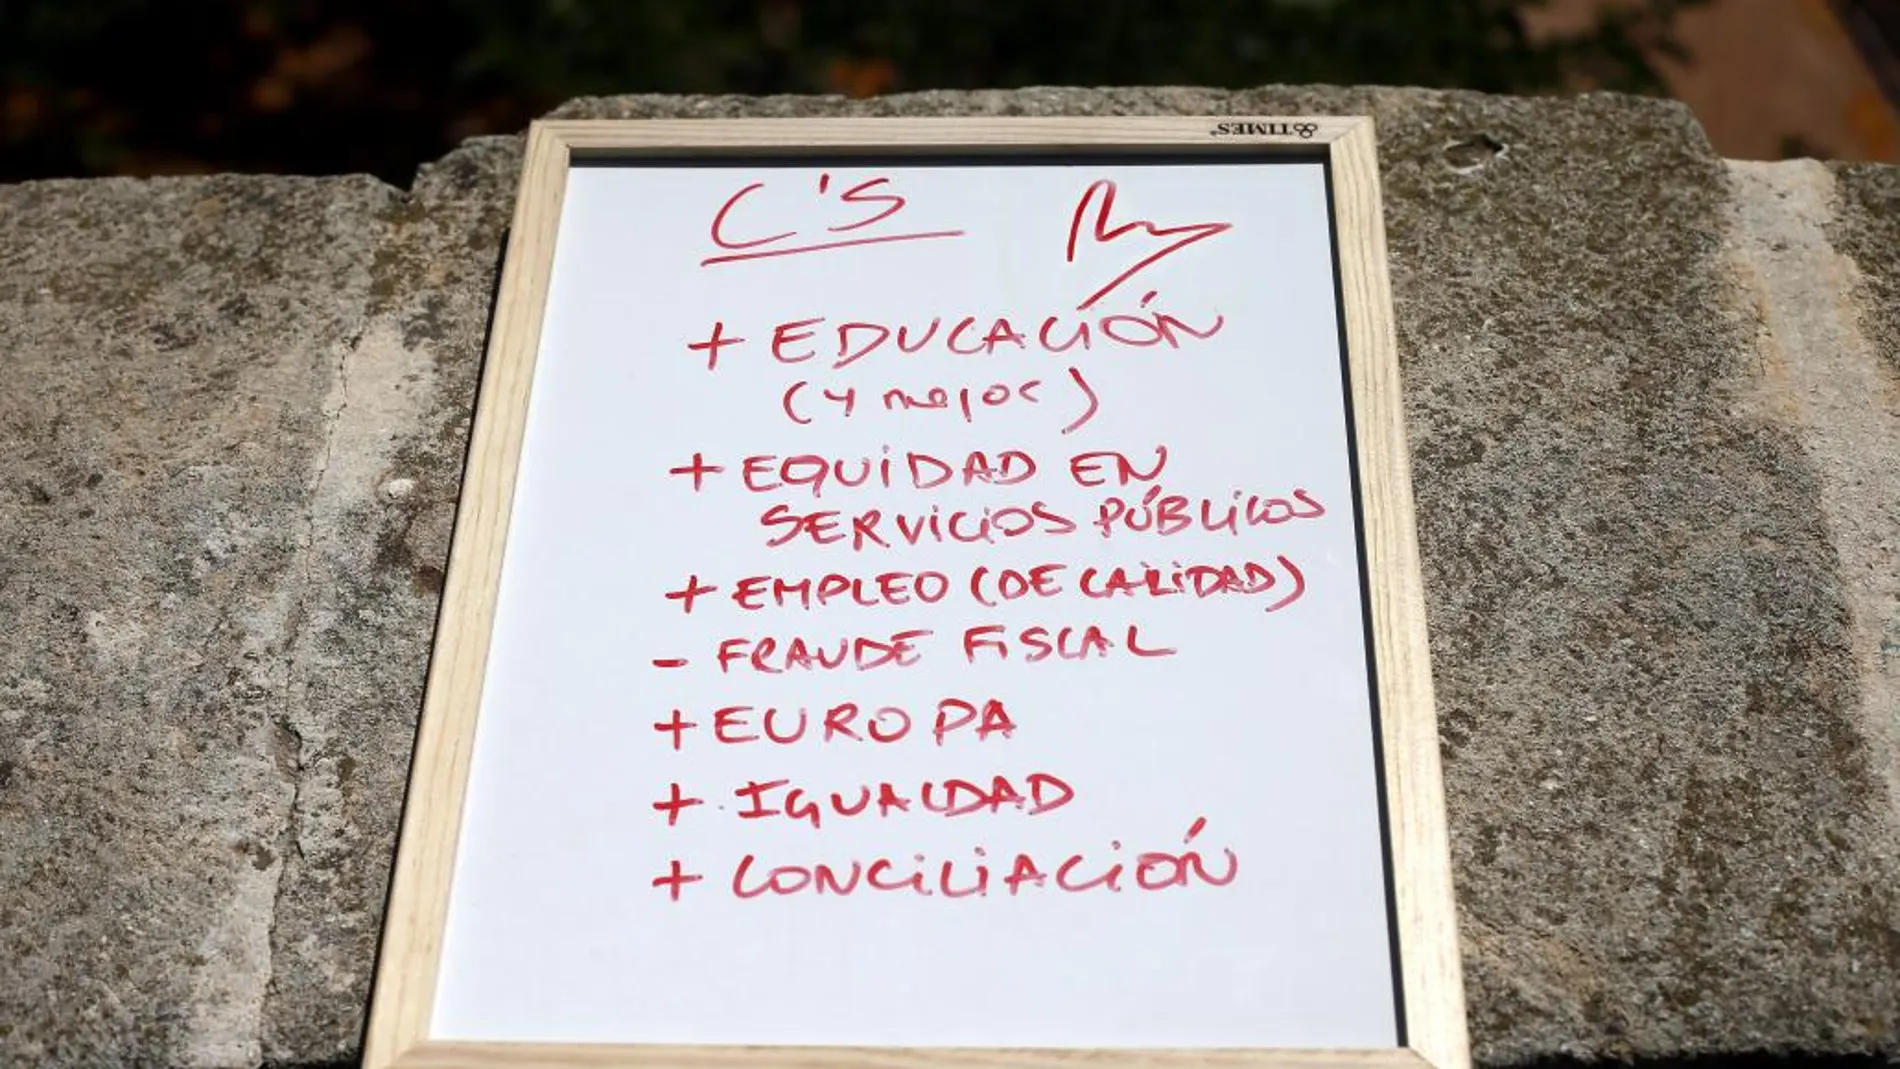 TIMES
C'S
+ EDUCACIÓN
(y mejor)
+ EQUIDAD EN
SERVICIOS PÚBLICOS
+ EMPLEO (DE CALIDAD)
- FRAUDE FISCAL
+ EUROPA
+ IGUALDAD
+ CONCILIACIÓN